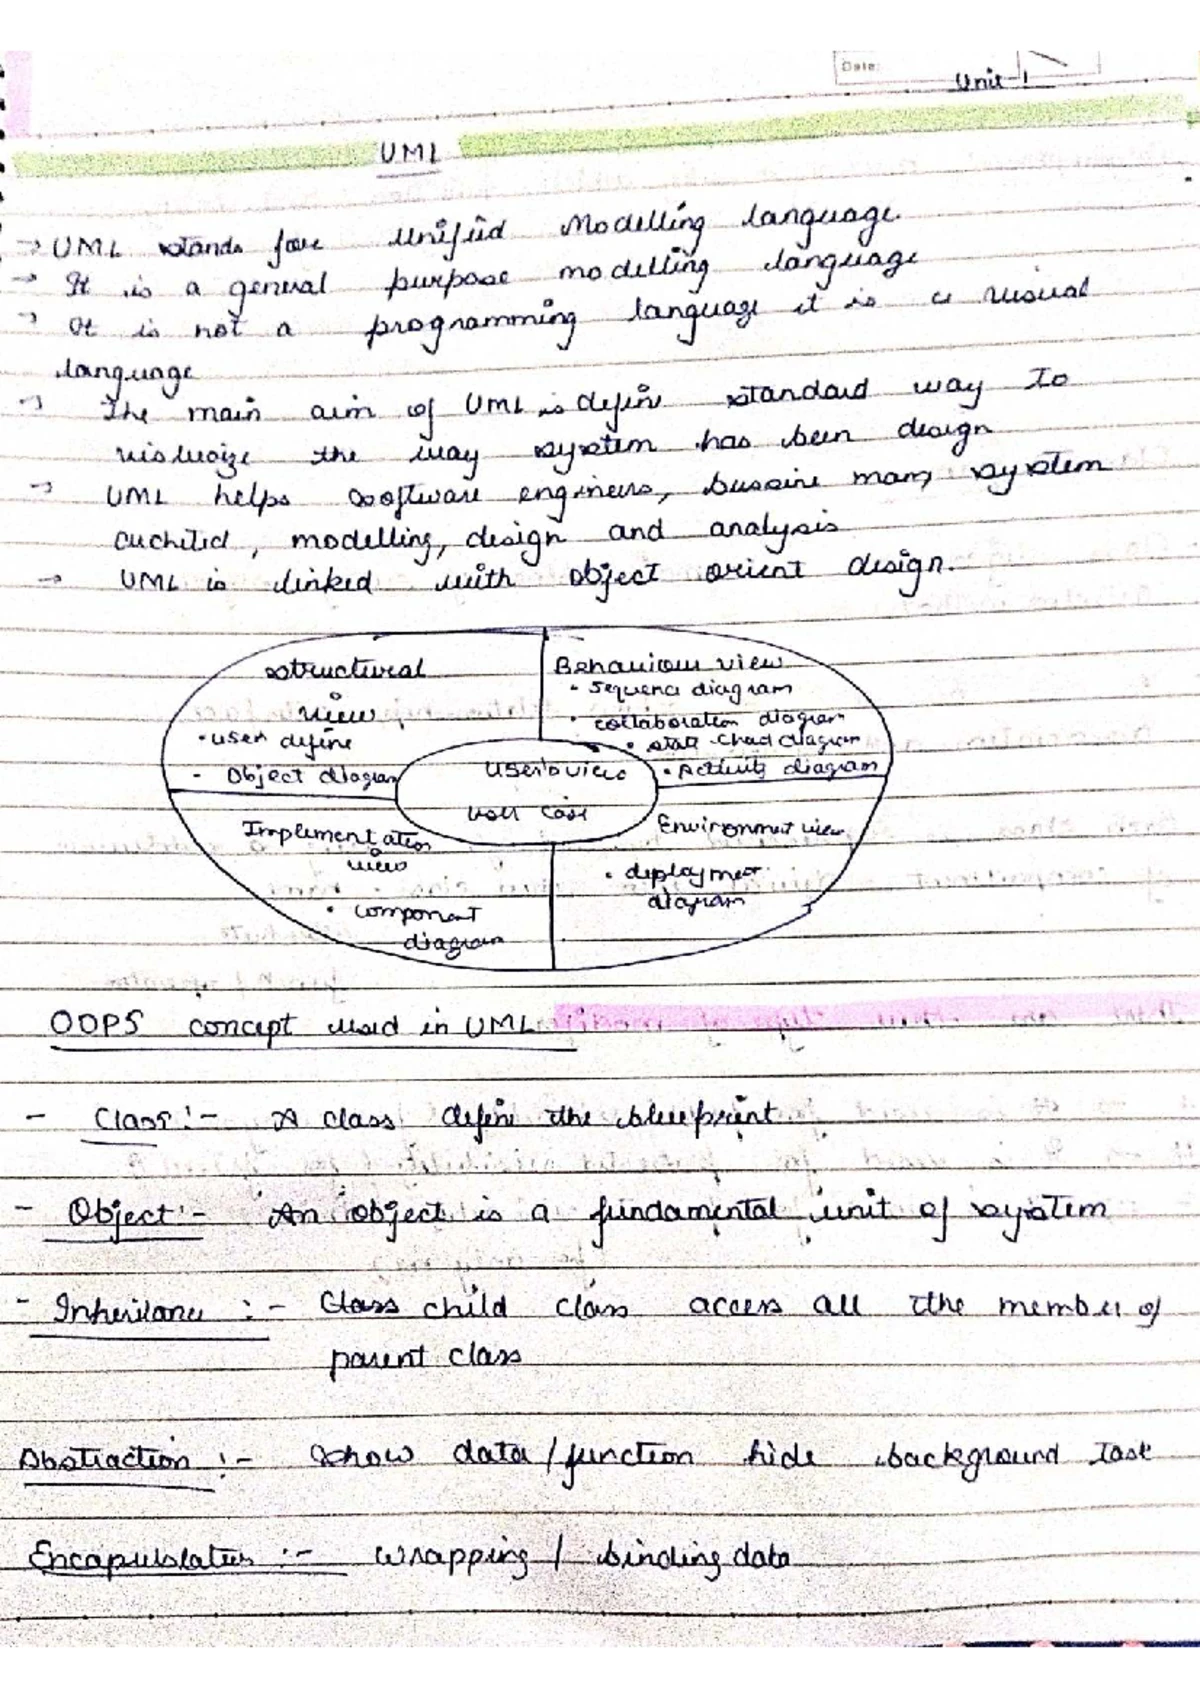 Date:
Unit-1
UML
→ UML stands for Unified Modelling language.
→ It is a general purpose modelling language
→ It is not a programming language it is a visual
language
→ The main aim of UML is define standard way to
the way system has been design
→ UML helps software engineers, bussine man, system
, modelling, design and analysis
→ UML is linked with object orient design.
structural
view
• user define
- Object diagram
Behaviour view
• sequence diagram
• collaboration diagram
• state chart diagram
• Activity diagram
User's view
user case
Implementation
view
• component
diagram
Environment view
• deployment
diagram
OOPS concept used in UML
- Class :- A class define the blueprint
- Object :- An object is a fundamental unit of system
- Inheritance :- Class child class access all the member of
parent class
Abstraction :- show data / function hide background task
:- wrapping / binding data